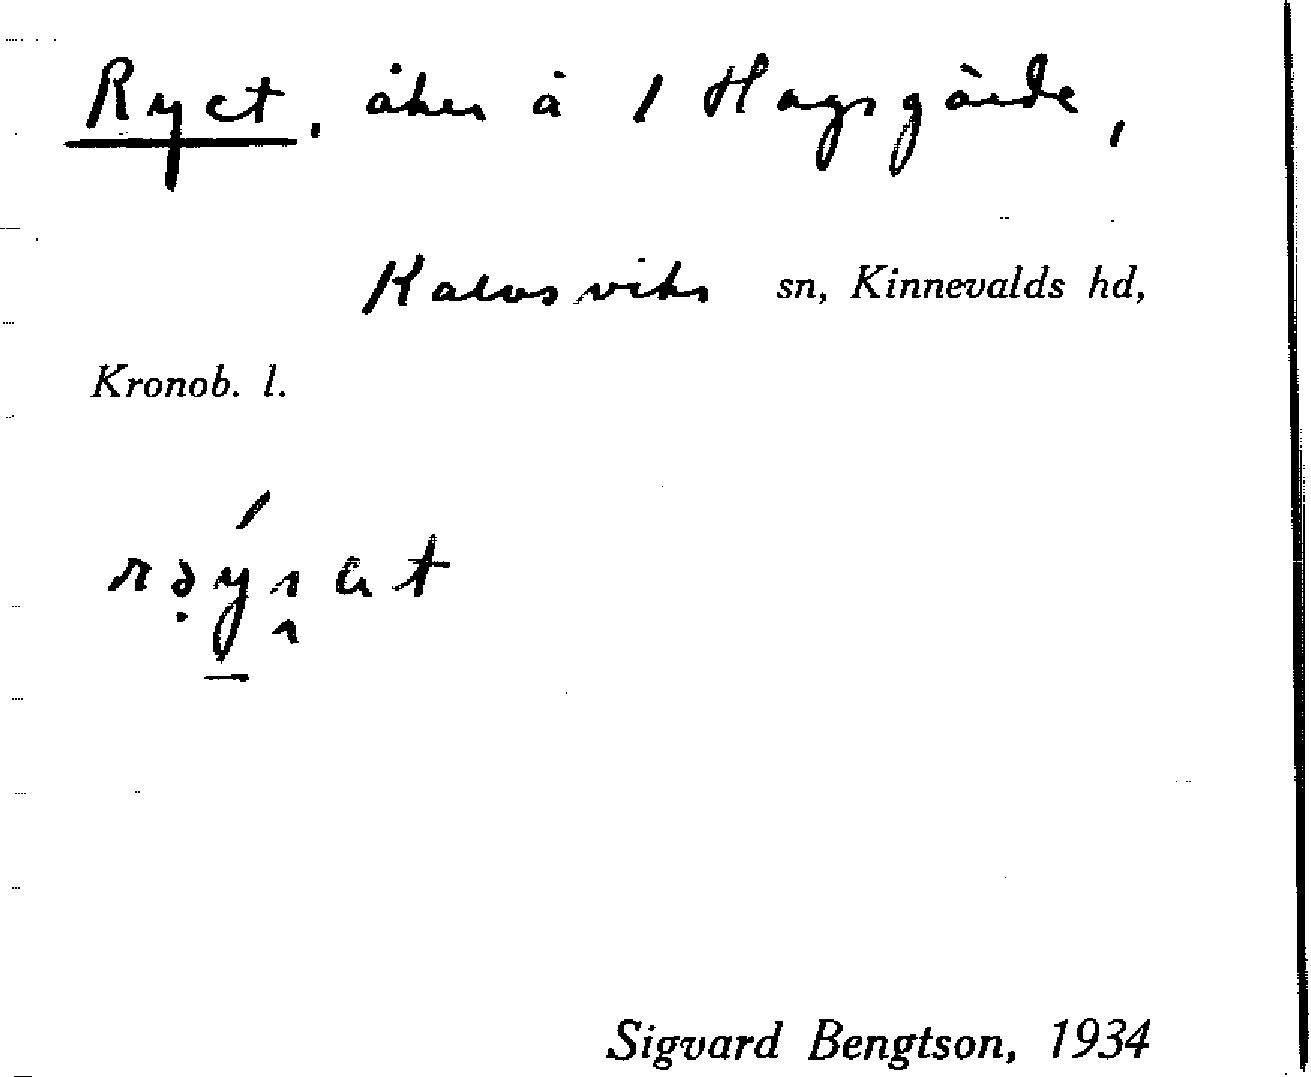 Ryet, åker å 1 Hagsgärde,
Kalvsviks sn, Kinnevalds hd,
Kronob. l.
Sigvard Bengtson, 1934